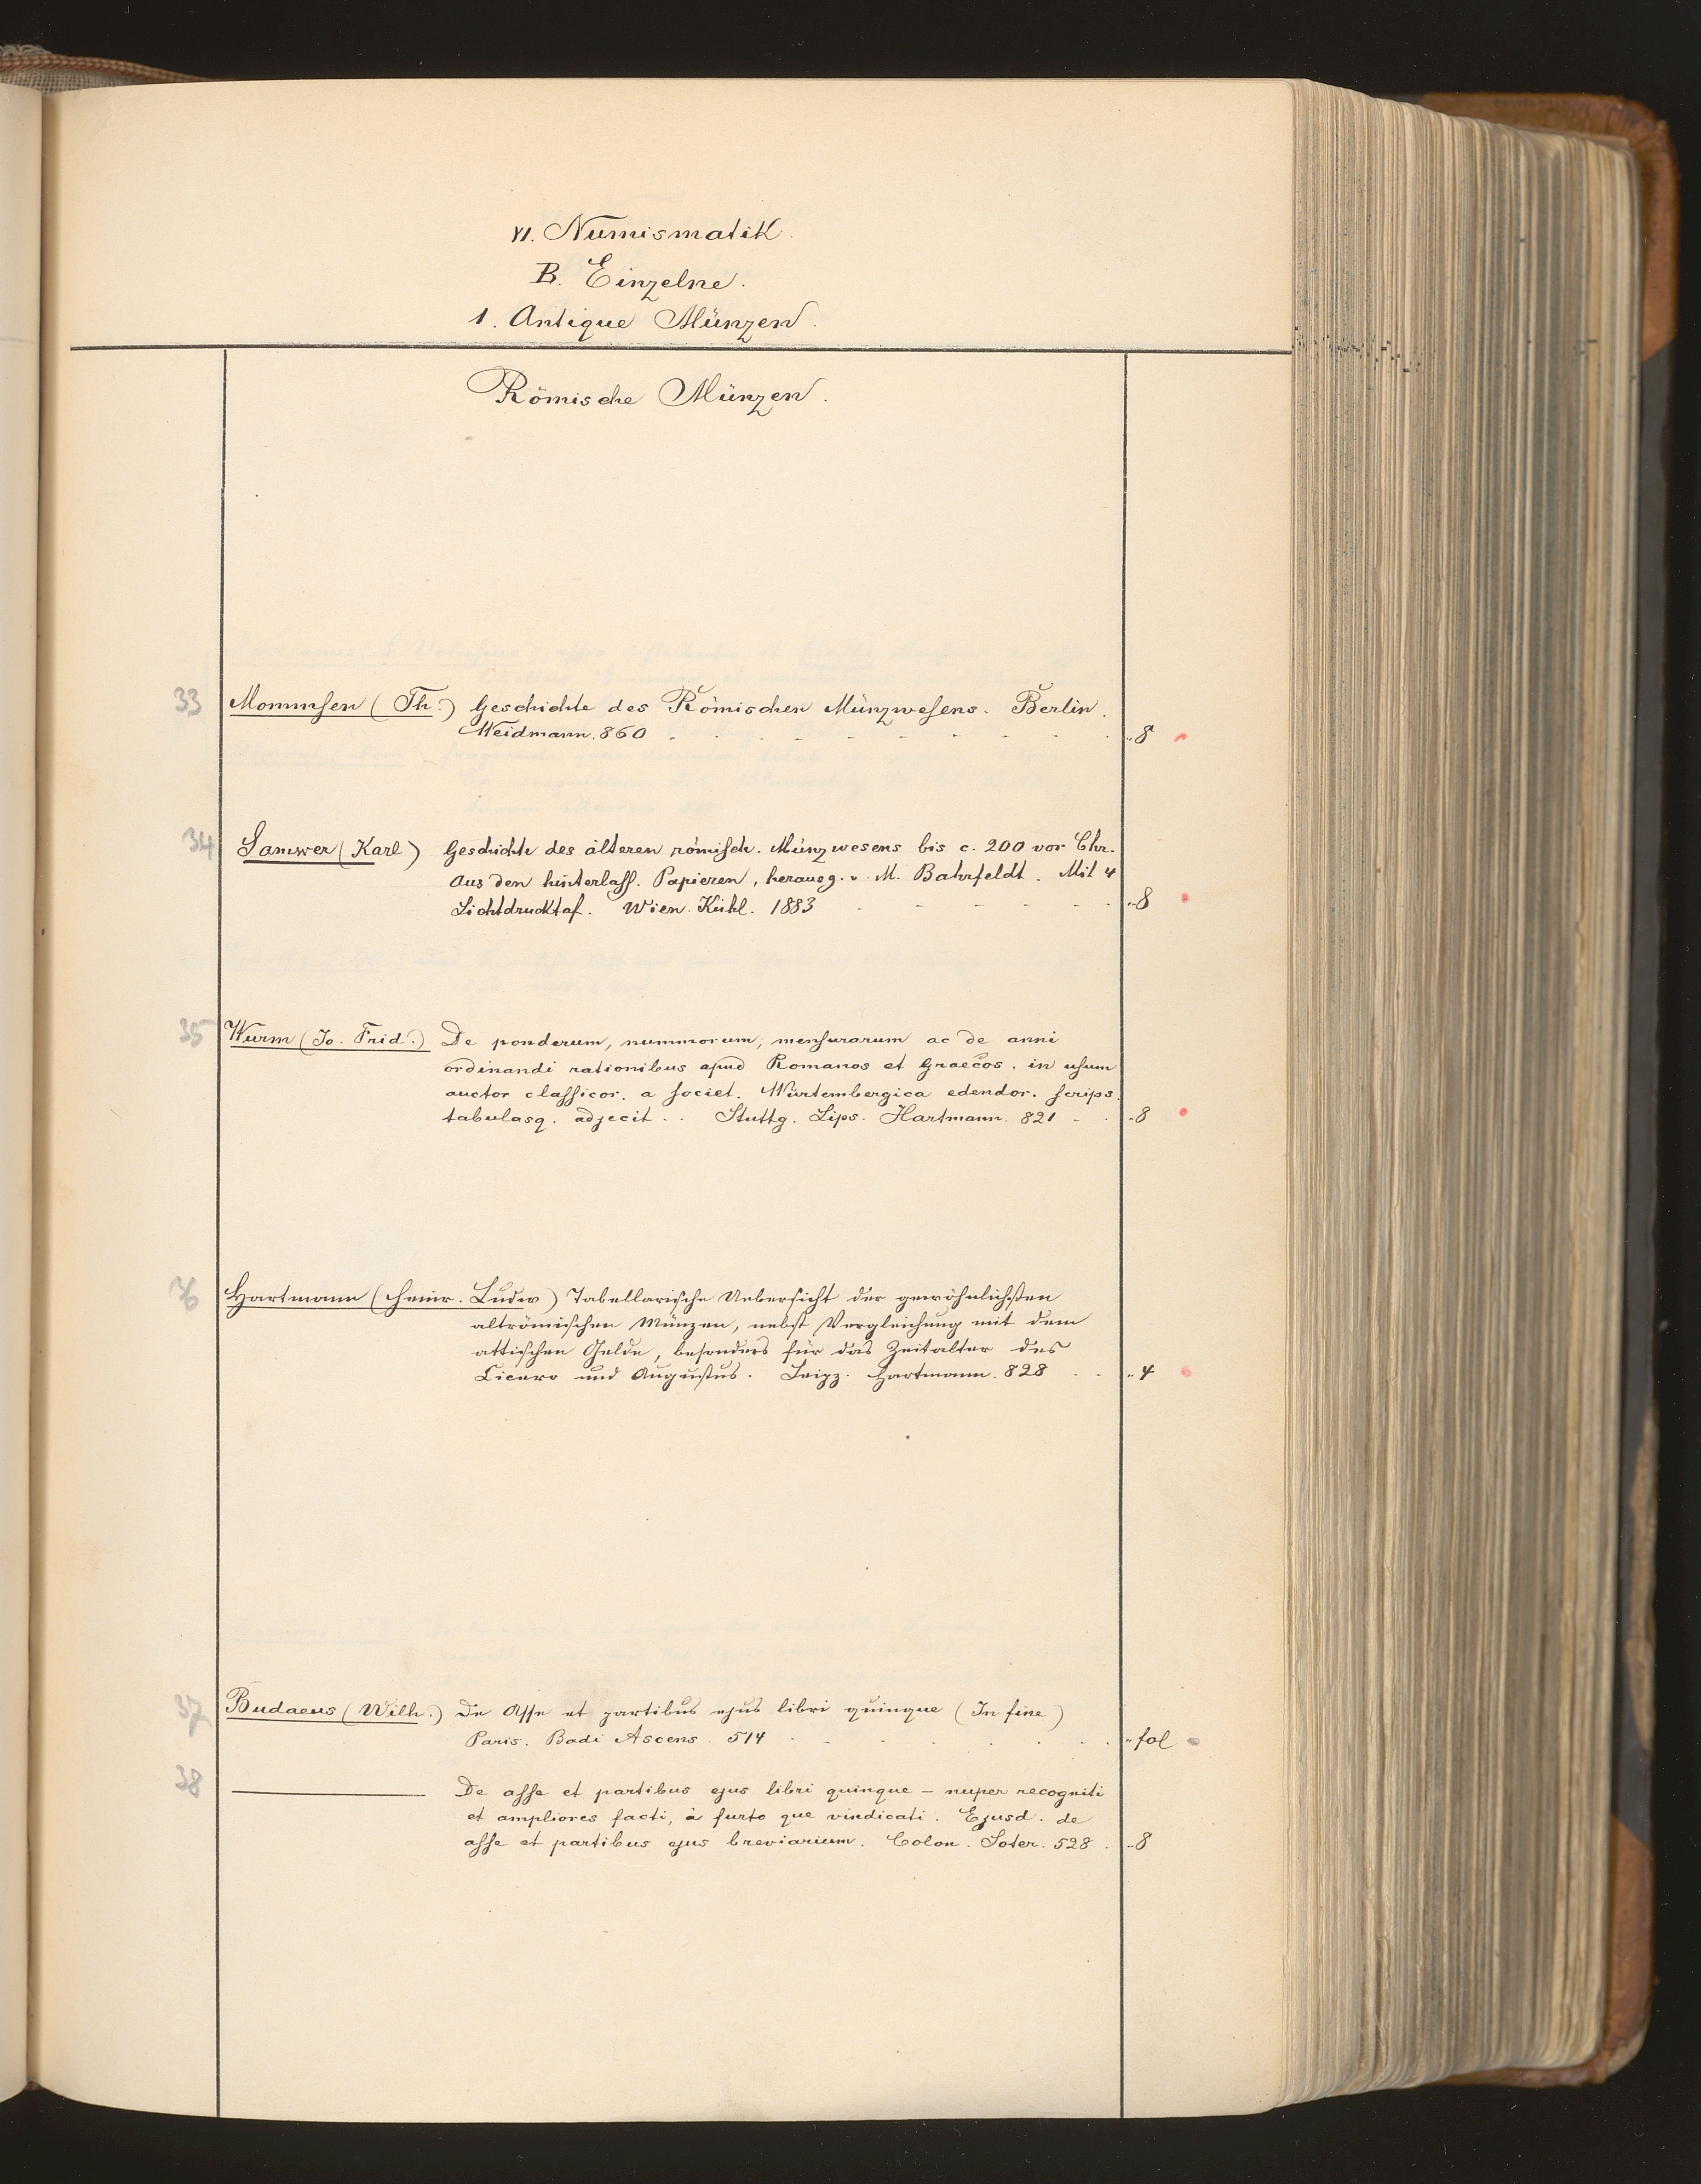 VI. Numismatik.
B. Einzelne.
1. Antique Münzen.
Römische Münzen.
33 Mommsen (Th.) Geschichte des Römischen Münzwesens. Berlin.
Weidmann. 860 - - - - - - - - - „8
34 Samwer (Karl) Geschichte des älteren römisch. Münzwesens bis c. 200 vor Chr.
Aus den hinterlass. Papieren, herausg. v. M. Bahrfeldt. Mit 4
Lichtdrucktaf. Wien. Kühl. 1883 - - - - - - „8
35 Wurm (Jo. Frid.) De ponderum, nummorum, mensurarum ac de anni
ordinandi rationibus apud Romanos et Graecos. in usum
auctor classicor. a societ. Würtembergica edendor. scrips.
tabulasq. adjecit. . Stuttg. Lips. Hartmann. 821 - - „8
36 Hartmann (Heinr. Ludw) Tabellarische Uebersicht der gewöhnlichsten
altrömischen Münzen, nebst Vergleichung mit dem
attischen Gelde, besonders für das Zeitalter des
Cicero und Augustus. Leipz. Hartmann. 828 - - „4
37 Budaeus (Wilh.) De Asse et partibus ejus libri quinque (In fine)
Paris. Badi Ascens. 514 . . . . . . . „fol
38 ——— De asse et partibus ejus libri quinque – nuper recogniti
et ampliores facti, à furto que vindicati. Ejusd. de
asse et partibus ejus breviarium. Colon. Soter. 528 . „8